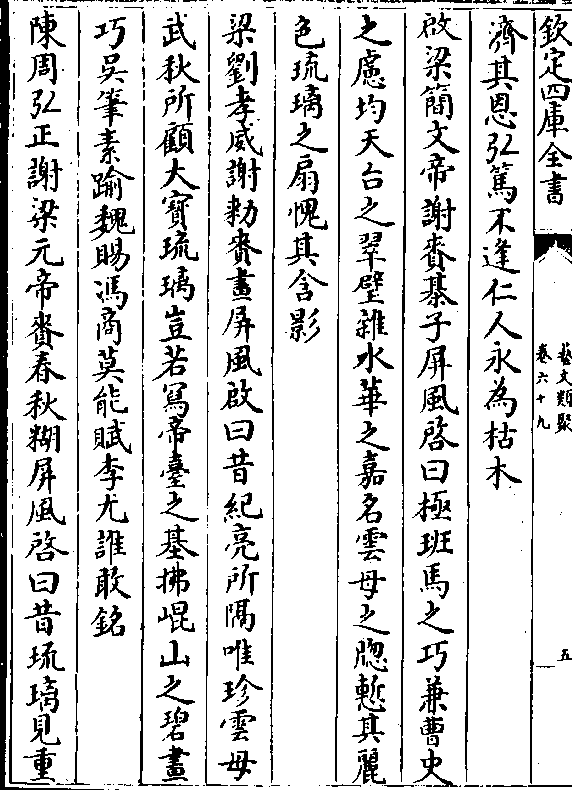 欽定四庫全書
藝文類聚
卷六十九
五
濟其恩弘篤不逢仁人永為枯木
啟梁簡文帝謝賚棊子屏風啓曰極班馬之巧兼曹史
之慮均天台之翠壁雜水華之嘉名雲母之牕慙其麗
色琉璃之扇愧其含影
梁劉孝威謝勅賚畫屏風啟曰昔紀亮所隔唯珍雲母
武秋所顧大寳琉璃豈若寫帝臺之基拂崐山之碧畫
巧吳筆素踰魏賜馮商莫能賦李尤誰敢銘
陳周弘正謝梁元帝賚春秋糊屏風啓曰昔琉璃見重